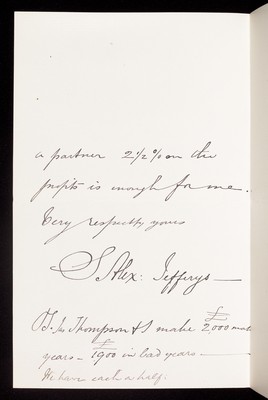 a partner 2 1/2 % on the
profits is enough for me.
Very respectfy yours
S. Alex: Jefferys
Thompson & I make £2000
years - £1900 in bad years -
We have each a half: